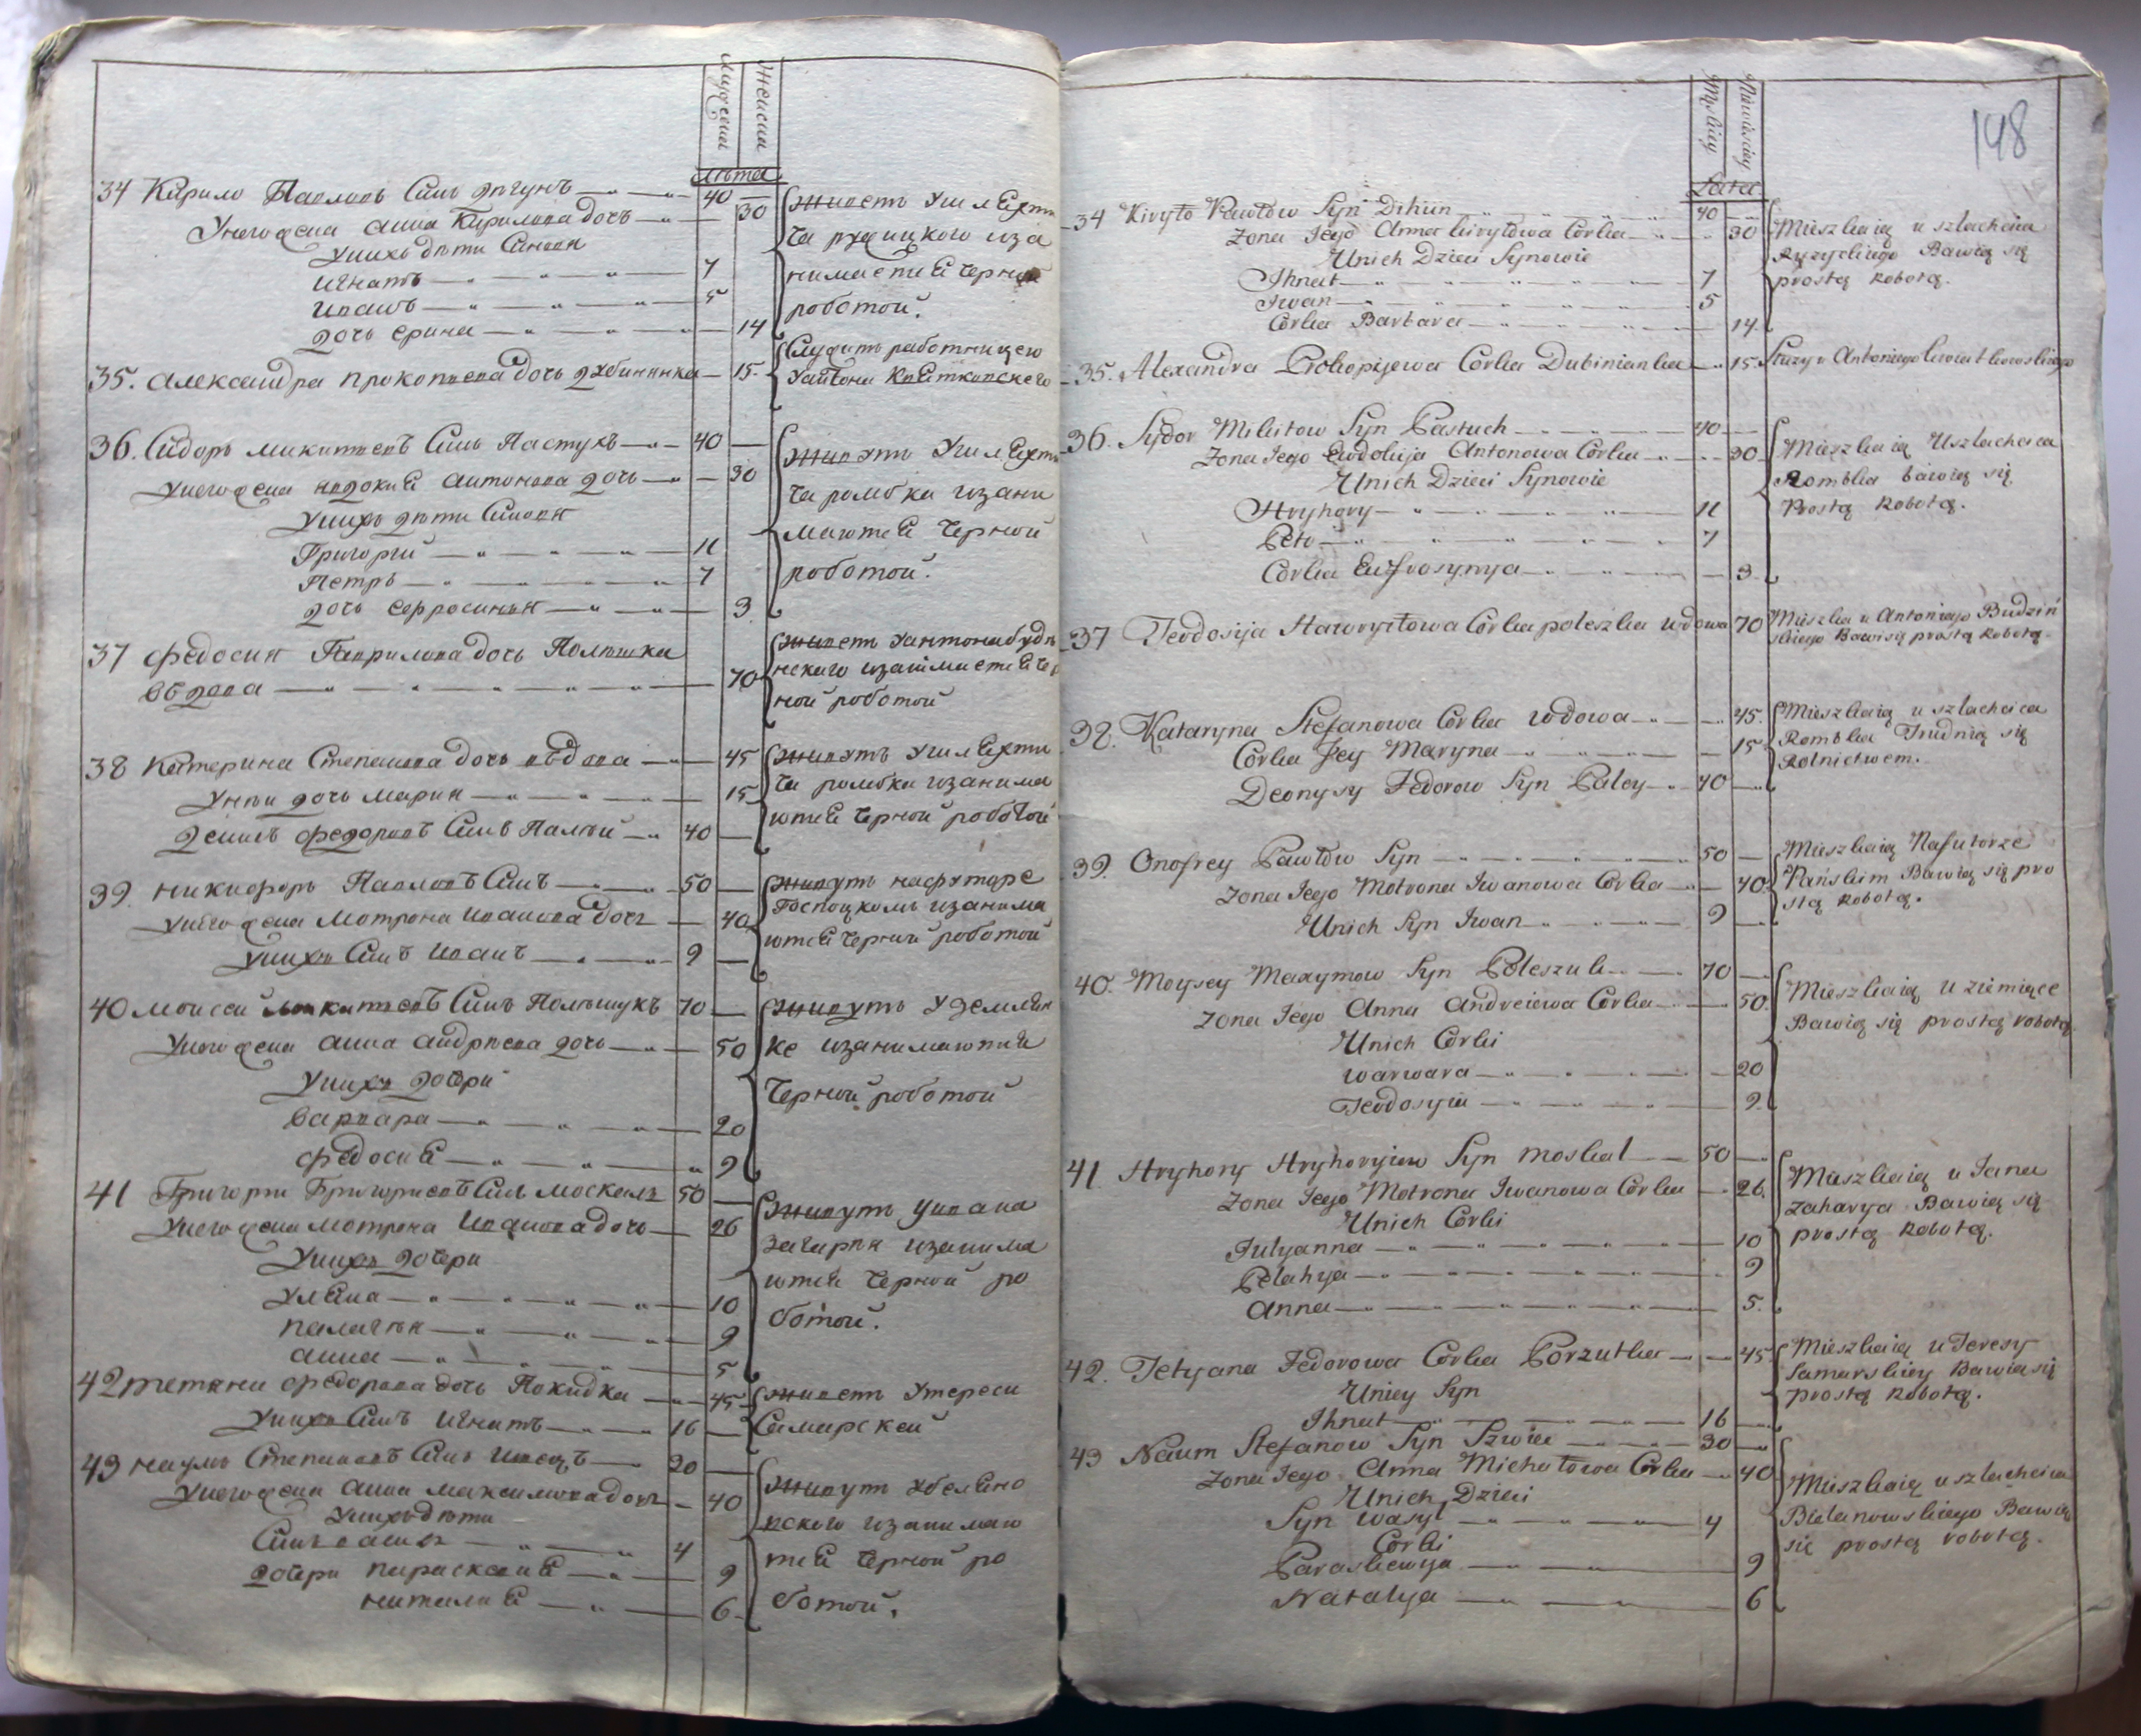 мужеска
женска
лѣта
34 Кирило Павловъ Синъ дѣгунъ — 40 —
Унего жена анна Кирилова дочь — 30
Унихъ дѣти Синовя
игнатъ — 7
иванъ — 5
дочь
— 14
Живетъ Ушляхти
ча ружицкого иза
нимается черной
роботой.
35. александра прокопиева дочь дубинянка — 15.
Служитъ работницею
Уантона Квятковского
36. Сидоръ микитиевъ Синъ Пастухъ — 40 —
Унего жена явдокия антонова дочь — 30
Унихъ дѣти Синовя
Григорий — 11
Петръ — 7
дочь
— 3
Живутъ Ушляхти
ча ромбка изани
маются черной
роботой.
37 федосия Гаврилова дочь Полѣшка
вдова — 70
Живетъ Уантона будзи
нского изаймается чер
ной роботой
38 Катерина Степанова дочь вдова — 45
Унеи дочь мария — 15
денисъ федоровъ Синъ Палѣй — 40 —
Живутъ Ушляхти
ча ромбка изанима
ются черной роботой
39. никифоръ Павловъ Синъ — 50 —
Унего жена мотрона иванова дочь — 40
Унихъ Синъ иванъ — 9 —
Живутъ нафуторе
Господскомъ изанима
ются черной роботой
40 моисей Синъ Полѣшукъ 70 —
Унего жена анна андрѣева дочь — 50
Унихъ дочери
варвара — 20
федосия — 9
Живутъ Уземлян
ке изанимаются
Черной роботой
41 Григорий Григориевъ Синъ москаль 50 —
Унего жена мотрона Иванова дочь — 26
Унихъ дочери
Уляна — 10
пелагия — 9
анна — 5
Живутъ Уивана
захария изанима
ются черной ро
ботой.
42 тетяна федорова дочь Покидка — 45
Унихъ Синъ игнатъ — 16 —
Живетъ Утереси
Самарской
43 наумъ Степановъ Синъ швецъ — 20 —
Унего жена анна максимова дочь — 40
Унихъ дѣти
Синъ василь — 4
дочери параскевия — 9
наталия — 6
Живутъ Убеляно
вского изанимаю
тся черной ро
ботой.
148
Męskiey
Niewieściey
Lata
34 Kiryło Pawłow Syn Dihun — 40 —
Żona Jego Anna Kiryłowa Corka — 30
Unich Dzieci Synowie
Ihnat — 7
Iwan — 5
Corka Barbara — 14
Mieszkaią u szlachcica
Rużyckiego Bawią się
prostą Robotą.
35. Alexandra Prokopijewa Corka Dubinianka — 15.
Służy u Antoniego Kwiatkowskiego
36. Sydor Mikitow Syn Pastuch — 40 —
Żona Jego Ewdokija Antonowa Corka — 30
Unich Dzieci Synowie
Hryhory — 11
Petr — 7
Corka Eufrosynya — 3.
Mieszkaią Uszlachcica
Rombka bawią się
Prostą Robotą.
37 Teodosija Hawryłowa Corka poleszka wdowa 70
Mieszka u Antoniego Budziń
skiego Bawi się prostą Robotą.
38. Kataryna Stefanowa Corka wdowa — 45.
Corka Jey Maryna — 15
Deonysy Fedorow Syn Paley — 40 —
Mieszkaią u szlachcica
Rombka Trudnią się
Rolnictwem.
39. Onofrey Pawłow Syn — 50 —
Żona Jego Motrona Iwanowa Corka — 40
Unich Syn Iwan — 9 —
Mieszkaią Nafutorze
Pańskim Bawią się pro
stą Robotą.
40. Moysey Maxymow Syn Poleszuk — 70 —
Żona Jego Anna Andreiewa Corka — 50.
Unich Corki
Warwara — 20
Teodosyia — 9.
Mieszkaią U ziemiące
Bawią się prostą robotą.
41 Hryhory Hryhoryiew Syn moskal — 50 —
Żona Jego Motrona Iwanowa Corka — 26.
Unich Corki
Julyanna — 10
Pelahya — 9
Anna — 5.
Mieszkaią u Jana
Zaharya Bawią się
prostą Robotą.
42. Tetyana Fedorowa Corka Porzutka — 45
Uniey Syn
Ihnat — 16 —
Mieszkaią u Teresy
Samarskiey Bawia się
prostą Robotą.
43 Naum Stefanow Syn Szwiec — 30 —
Żona Jego Anna Michałowa Corka — 40
Unich Dzieci
Syn wasyl — 4
Corki
Paraskiewya — 9
Natalya — 6
Mieszkaią u szlachcica
Bielanowskiego Bawią
się prostą robotą.